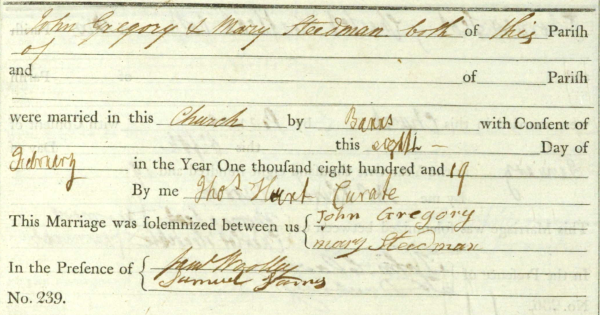 John Gregory & Mary Steedman both of this Parish
of
and of Parish
were married in this Church by Banns with Consent of
this eighth Day of
February in the Year One thousand eight hundred and 19
By me Thos Hunt Curate
This Marriage was solemnized between us { John Gregory
Mary Steedman
In the Presence of { Woolley
Samuel James
No. 239.